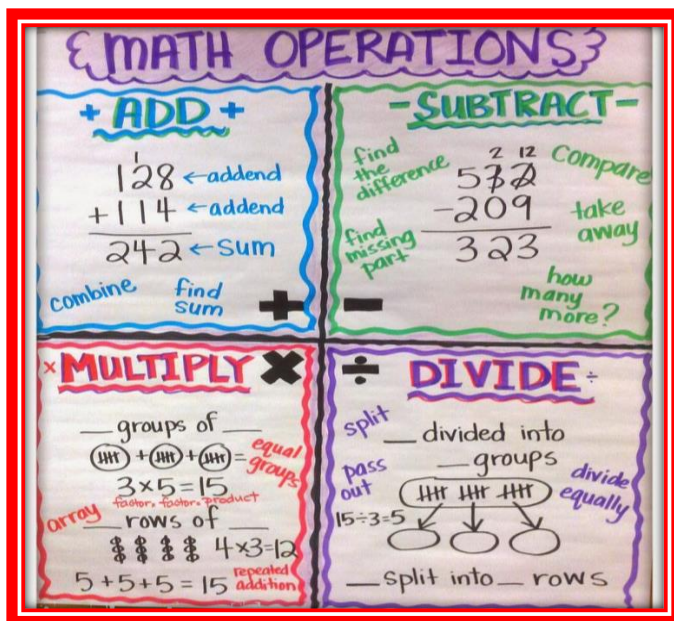 MATH OPERATIONS
+ ADD +
1
128 ← addend
+114 ← addend
242 ← sum
combine
find
sum
+
- SUBTRACT -
find
the
difference
2 12
532
-209
323
Compare
take
away
find
missing
part
how
many
more?
-
× MULTIPLY ×
__ groups of __
+ + =
equal
groups
3 × 5 = 15
factor × factor = product
array
__ rows of __
4×3=12
5 + 5 + 5 = 15
repeated
addition
÷ DIVIDE ÷
split
__ divided into
__ groups
pass
out
divide
equally
15÷3=5
__ split into __ rows